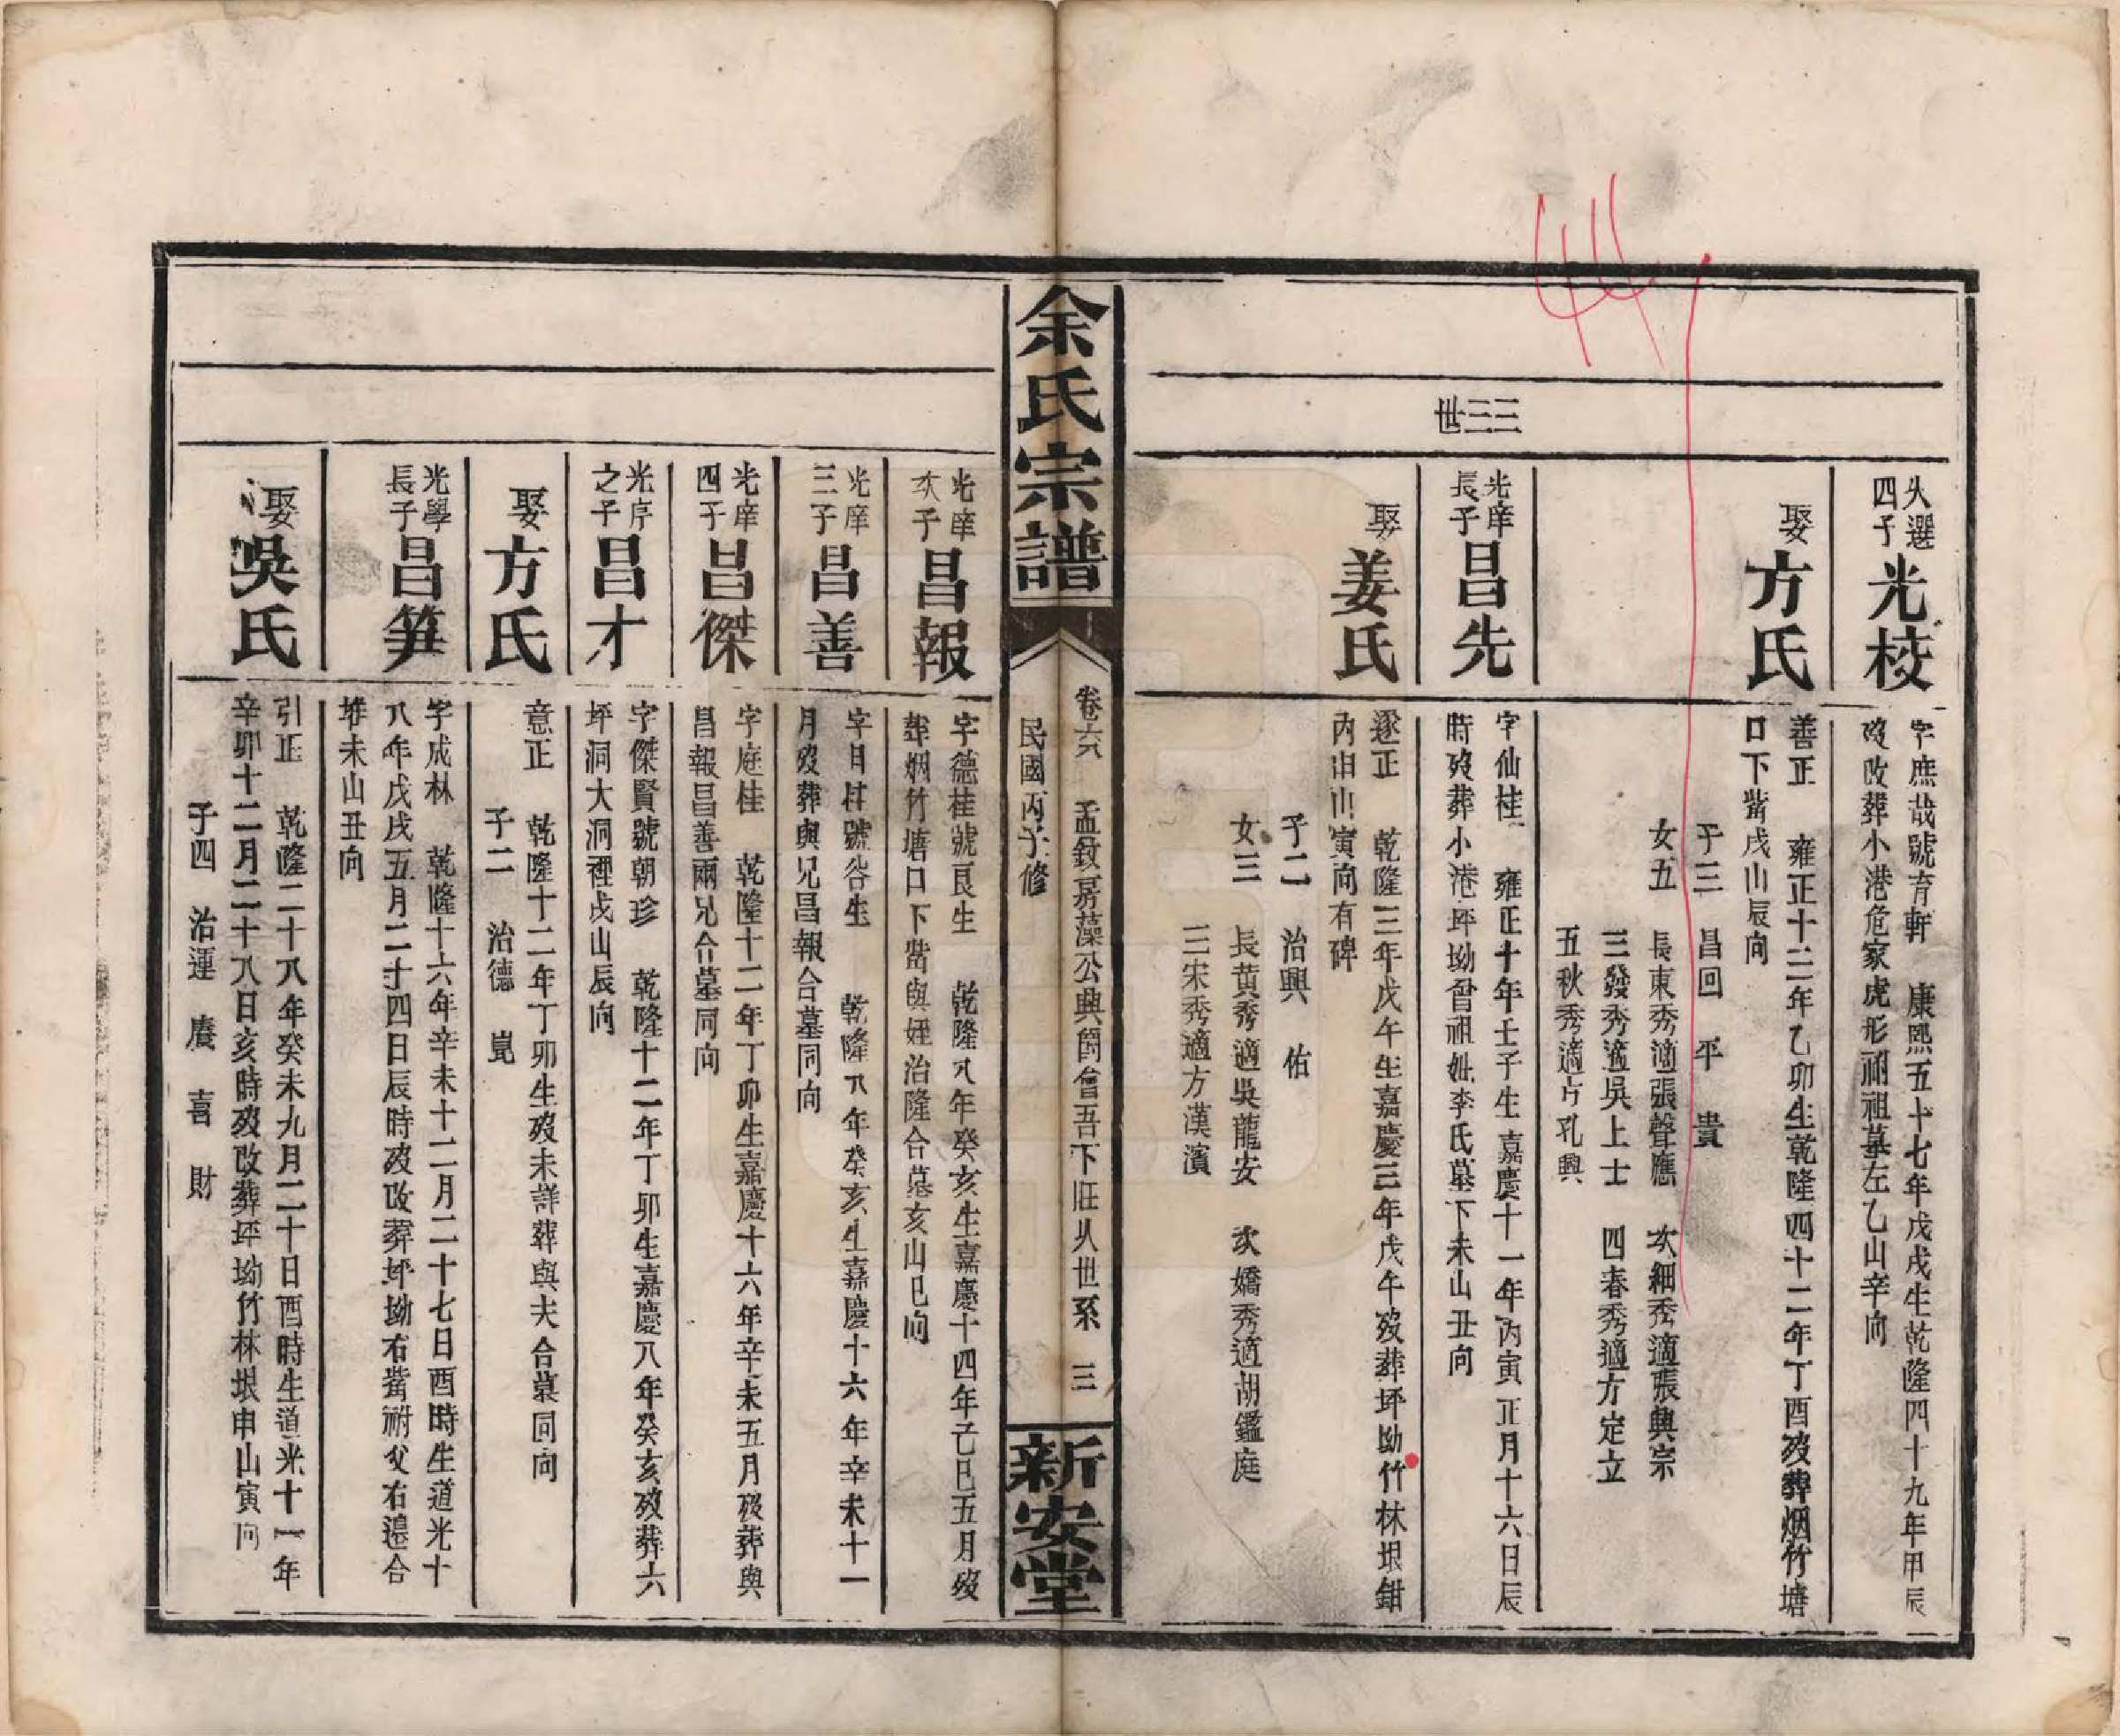 世三三
大選
四子
光校
字庶哉號育軒　康熙五十七年戊戌生乾隆四十九年甲辰
歿改葬小港危家虎形祔祖墓左乙山辛向
娶
方氏
善正　雍正十三年乙卯生乾隆四十二年丁酉歿葬烟竹塘
口下嘴戌山辰向
子三　昌回　平　貴
女五　長東秀適張聲應　次細秀適張興宗
三發秀適吳上士　四春秀適方定立
五秋秀適方孔興
光庠
長子
昌先
字仙桂　雍正十年壬子生嘉慶十一年丙寅正月十六日辰
時歿葬小港坪坳曾祖妣李氏墓下未山丑向
娶
姜氏
遂正　乾隆三年戊午生嘉慶三年戊午歿葬坪坳竹林垠鉗
內申山寅向有碑
子二　治興　佑
女三　長黃秀適吳龍安　次嬌秀適胡鑑庭
三宋秀適方漢濱
余氏宗譜
卷六　孟敘嘉藻公興爵會吾下旺人世系　三
民國丙子修
新安堂
光庠
次子
昌報
字德桂號良生　乾隆八年癸亥生嘉慶十四年己巳五月歿
葬烟竹塘口下嘴與姪治隆合墓亥山巳向
光庠
三子
昌善
字月桂號谷生　乾隆八年癸亥生嘉慶十六年辛未十一
月歿葬與兄昌報合墓同向
光庠
四子
昌傑
字庭桂　乾隆十二年丁卯生嘉慶十六年辛未五月歿葬與
昌報昌善兩兄合墓同向
光序
之子
昌才
字傑賢號朝珍　乾隆十二年丁卯生嘉慶八年癸亥歿葬六
坪洞大洞裡戌山辰向
娶
方氏
意正　乾隆十二年丁卯生歿未詳葬與夫合墓同向
子二　治德　崑
光學
長子
昌笋
字成林　乾隆十六年辛未十二月二十七日酉時生道光十
八年戊戌五月二十四日辰時歿改葬坪坳右嘴祔父右邊合
堆未山丑向
娶
吳氏
引正　乾隆二十八年癸未九月二十日酉時生道光十一年
辛卯十二月二十八日亥時歿改葬坪坳竹林垠申山寅向
子四　治運　賡　喜　財